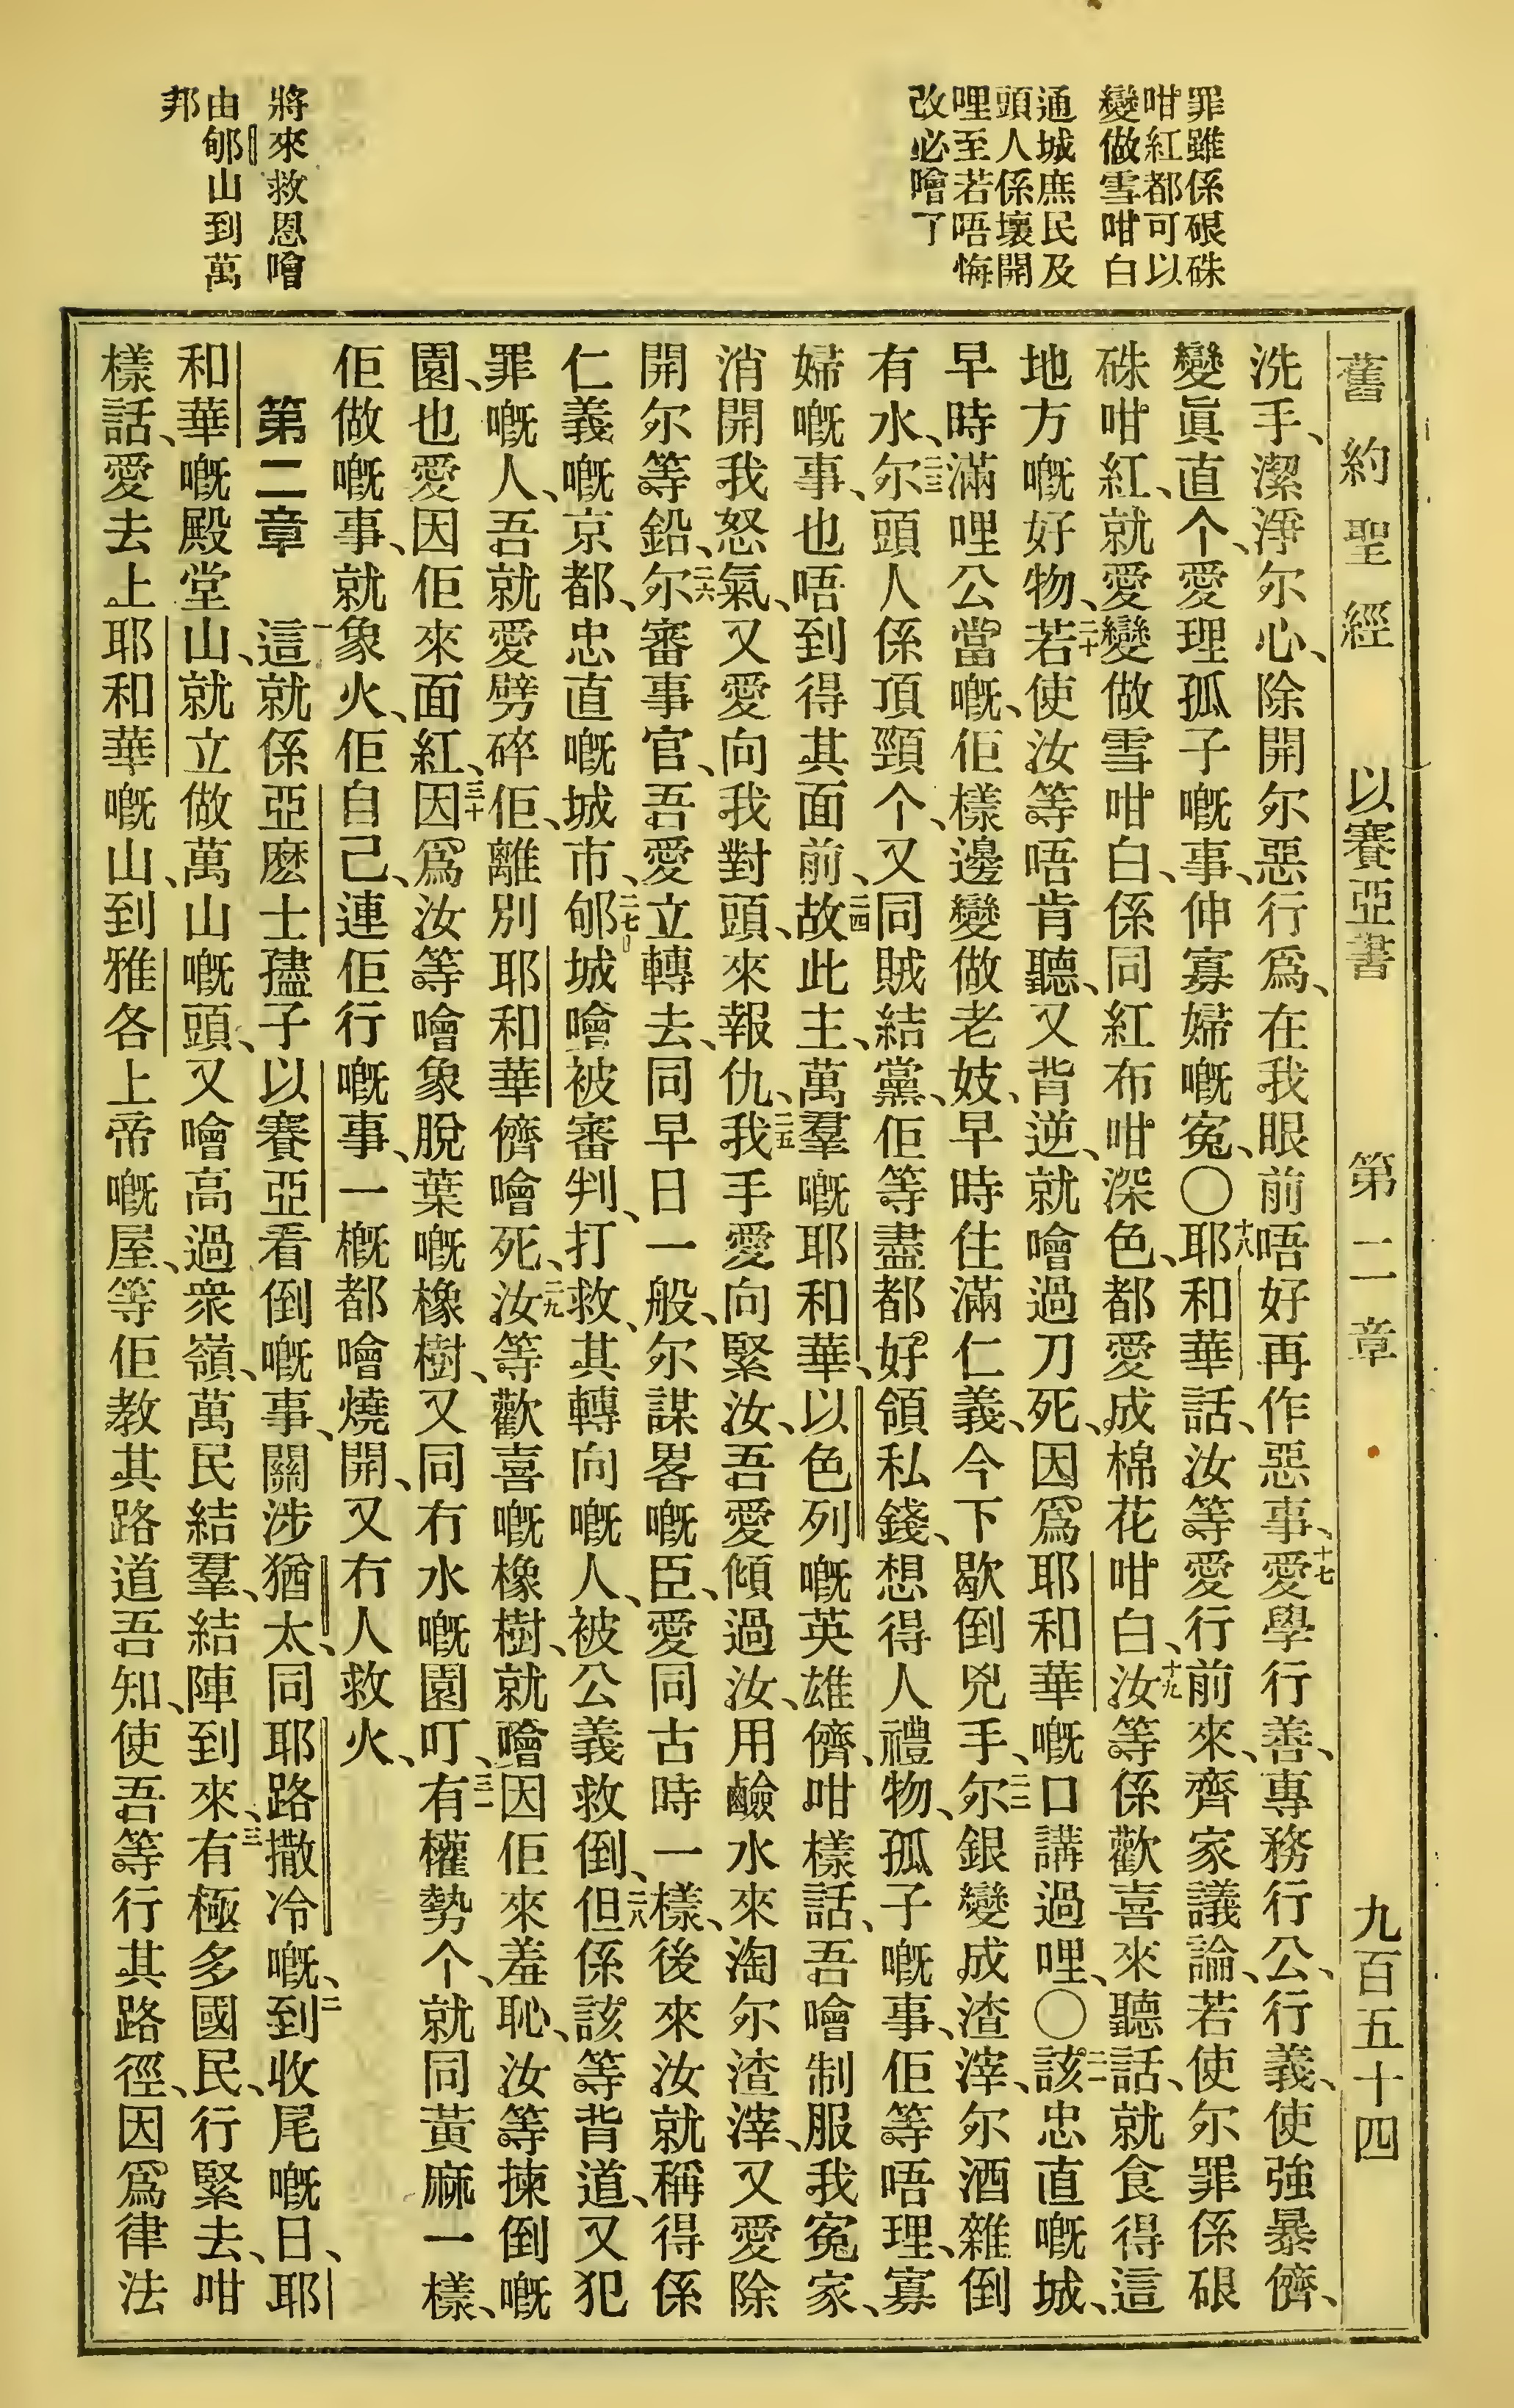 罪雖係硍硃
咁紅都可以
變做雪咁白
通城庶民及
頭人係壞開
哩至若唔悔
改必噲了
將來救恩噲
由郇山到萬
邦
舊約聖經 以賽亞書 第二章 九百五十四
洗手、潔淨尔心、除開尔惡行爲、在我眼前唔好再作惡事、十七愛學行善、專務行公、行義、使強暴儕、
變眞直个、愛理孤子嘅事、伸寡婦嘅冤、〇十八耶和華話、汝等愛行前來、齊家議論、若使尔罪係硍
硃咁紅、就愛變做雪咁白、係同紅布咁深色、都愛成棉花咁白、十九汝等係歡喜來聽話、就食得這
地方嘅好物、二十若使汝等唔肯聽、又背逆、就噲過刀死、因爲耶和華嘅口講過哩、〇二一該忠直嘅城、
早時滿哩公當嘅、佢樣邊變做老妓、早時住滿仁義、今下歇倒兇手、二二尔銀變成渣滓、尔酒雜倒
有水、二三尔頭人係頂頸个、又同賊結黨、佢等盡都好領私錢、想得人禮物、孤子嘅事、佢等唔理、寡
婦嘅事、也唔到得其面前、二四故此主、萬羣嘅耶和華、以色列嘅英雄儕、咁樣話、吾噲制服我寃家、
消開我怒氣、又愛向我對頭、來報仇、二五我手愛向緊汝、吾愛傾過汝、用鹼水來淘尔渣滓、又愛除
開尔等鉛、二六尔審事官、吾愛立轉去、同早日一般、尔謀畧嘅臣、愛同古時一樣、後來汝就稱得係
仁義嘅京都、忠直嘅城市、二七郇城噲被審判、打救、其轉向嘅人、被公義救倒、二八但係該等背道、又犯
罪嘅人、吾就愛劈碎佢、離別耶和華儕噲死、二九汝等歡喜嘅橡樹、就噲因佢來羞恥、汝等揀倒嘅
園、也愛因佢來面紅、三十因爲汝等噲象脫葉嘅橡樹、又同冇水嘅園叮、三一有權勢个、就同黃麻一樣、
佢做嘅事、就象火、佢自己、連佢行嘅事、一概都噲燒開、又冇人救火、
第二章 一這就係亞麽士孻子以賽亞看倒嘅事、關涉猶太、同耶路撒冷嘅、二到收尾嘅日、耶
和華嘅殿堂山、就立做萬山嘅頭、又噲高過衆嶺、萬民結羣、結陣到來、三有極多國民、行緊去、咁
樣話、愛去上耶和華嘅山、到雅各上帝嘅屋、等佢教其路道吾知、使吾等行其路徑、因爲律法